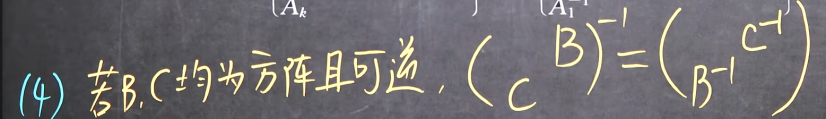 (A_k ) (A_1^{-1} )
(4) 若B,C均为方阵且可逆, ( B C )^{-1} = ( C^{-1} B^{-1} )